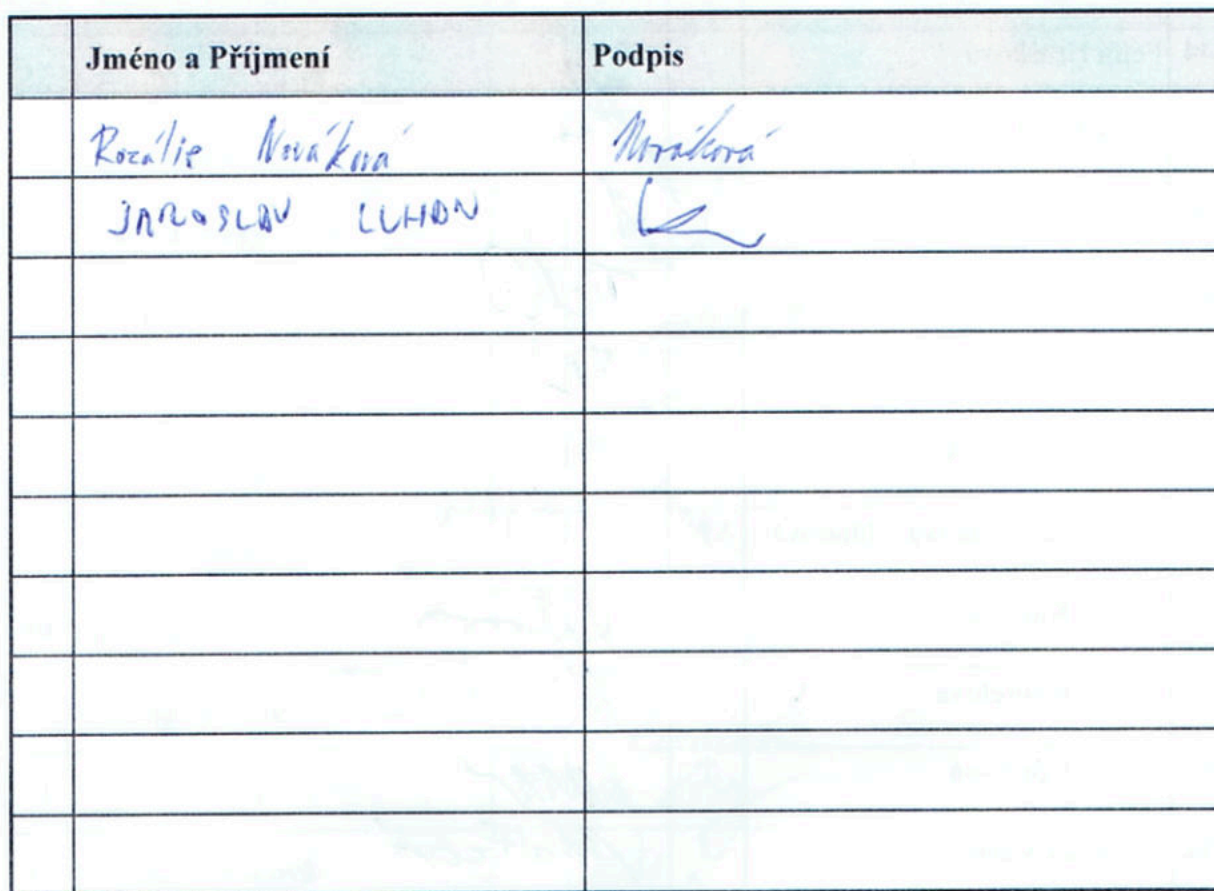 Jméno a Příjmení Podpis
Rozálie Nováková Nováková
JAROSLAV LUHAN